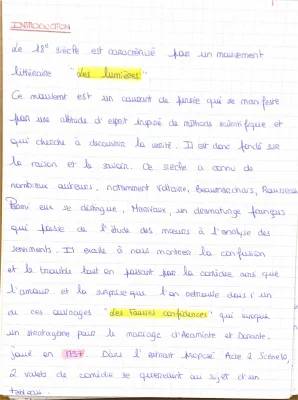 INTRODUCTION
Le 18e siècle est caractérisé par un mouvement
littéraire "Les lumières"
Ce mouvement est un courant de pensée qui se manifeste
par une attitude d'esprit inspiré de méthode scientifique et
qui cherche à découvrir la vérité. Il est donc fondé sur
la raison et le savoir. Ce siècle a connu de
nombreux auteurs, notamment Voltaire, Beaumarchais, Rousseau
Parmi eux se distingue, Marivaux, un dramaturge français
qui passe de l'étude des mœurs à l'analyse des
sentiments. Il à nous montrer la confusion
et le trouble tout en passant par la comédie ainsi que
l'amour et la surprise que l'on retrouve dans l'un
de ces ouvrages "Les Fausses confidences" qui évoque
un stratagème pour le mariage d'Araminte et Dorante,
joué en 1737. Dans l'extrait proposé Acte 2 Scène 10,
2 valets de comédie se querellent au sujet d'un
tableau.